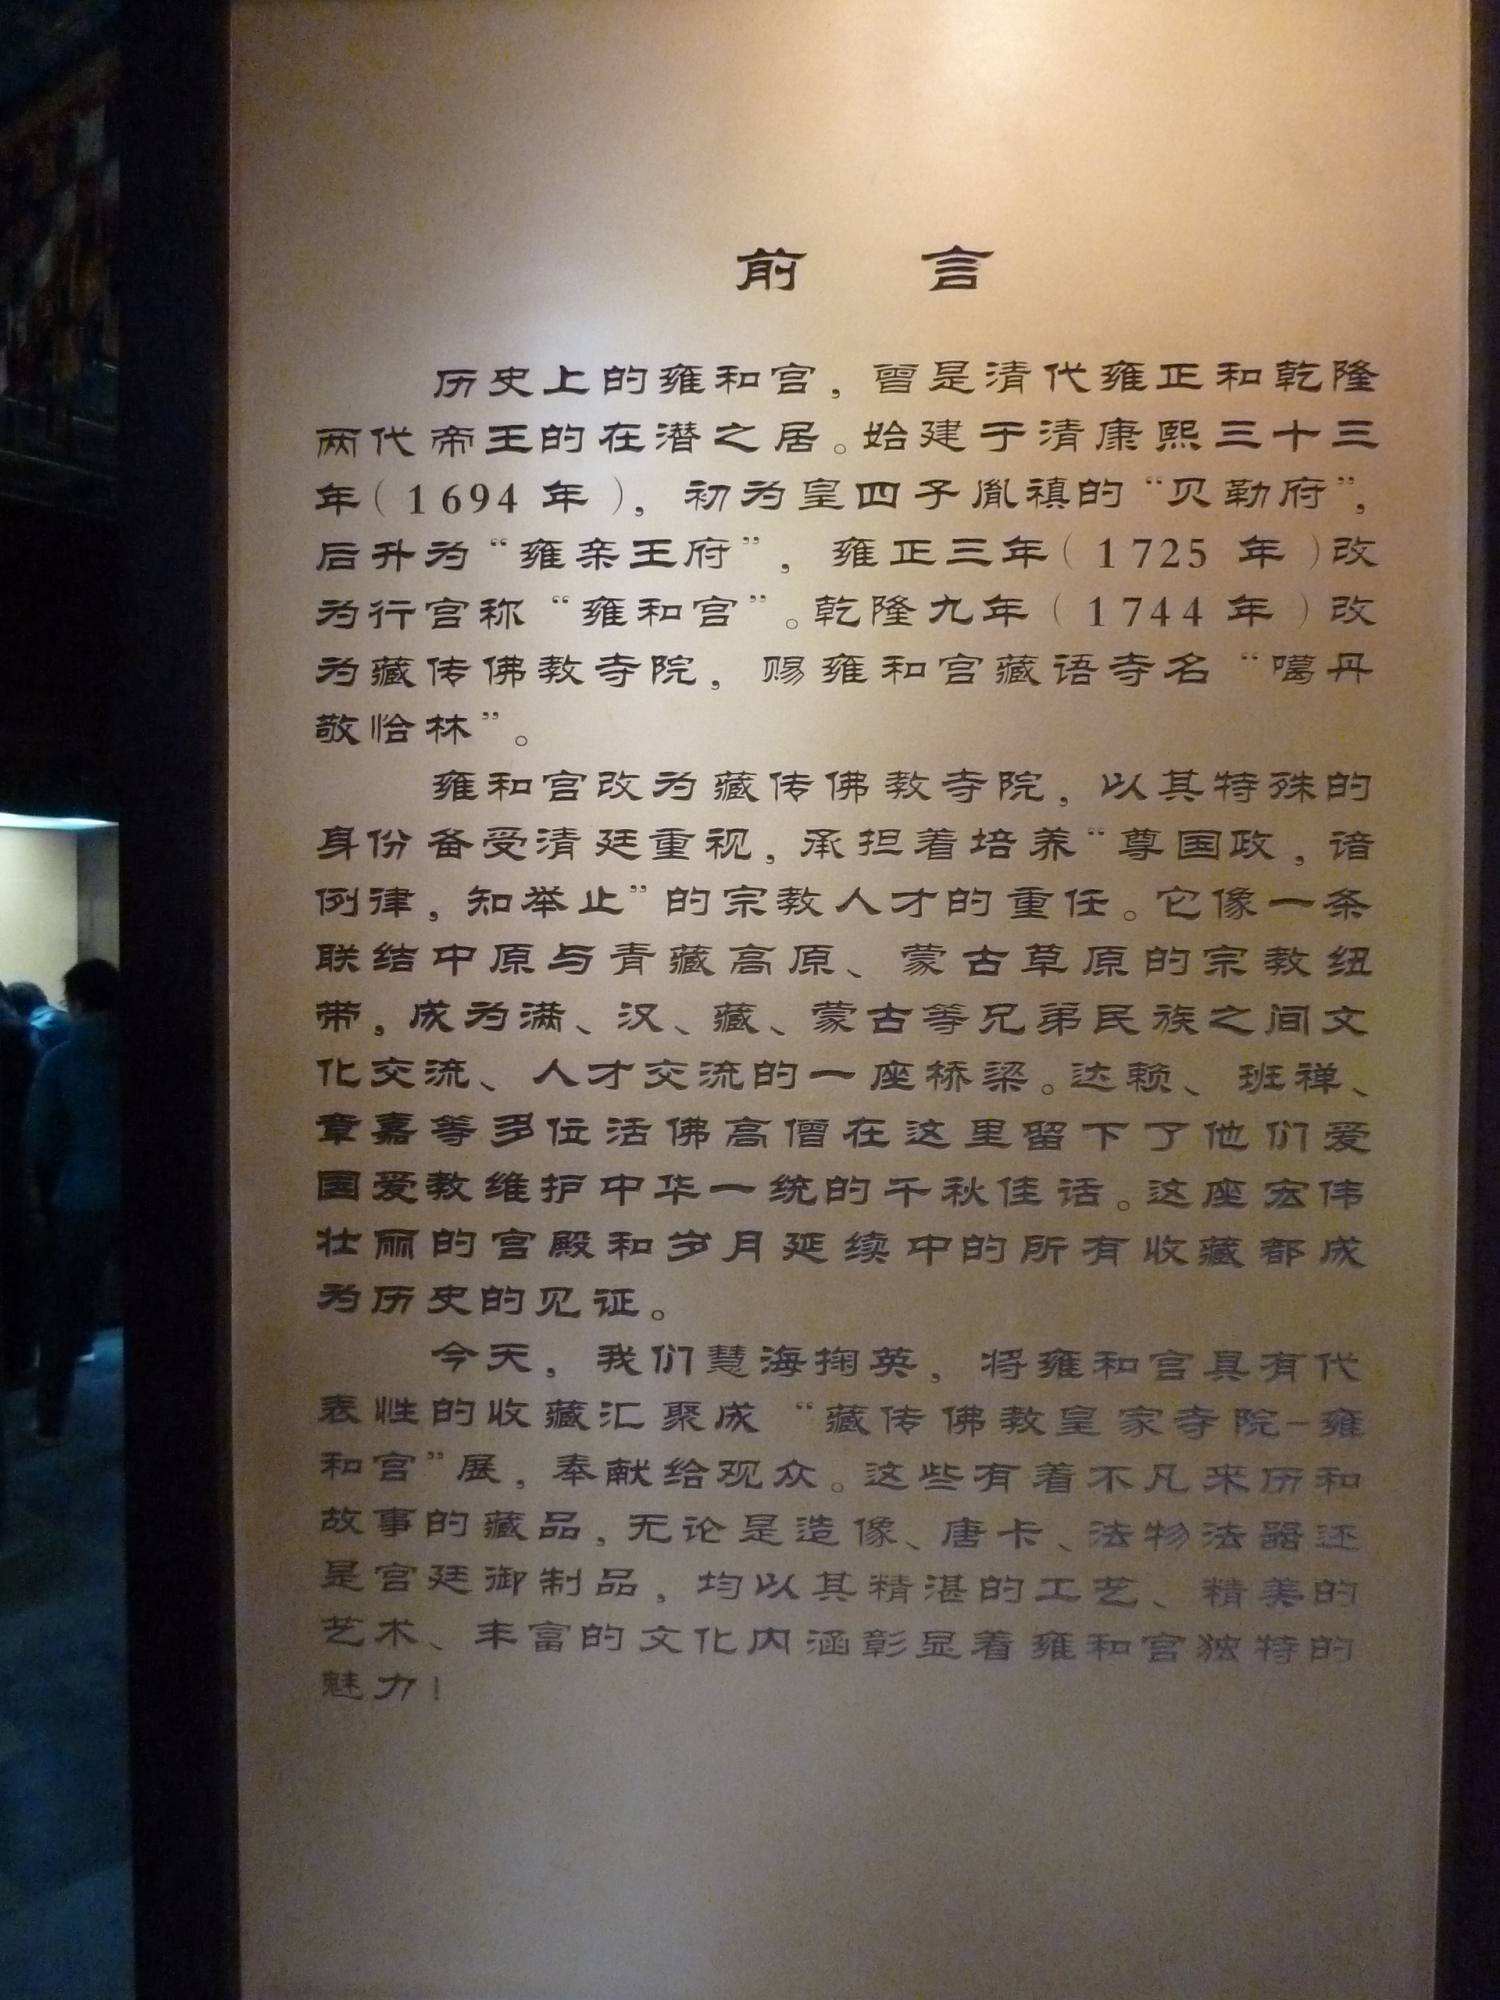 前 言
历史上的雍和宫，曾是清代雍正和乾隆
两代帝王的在潜之居。始建于清康熙三十三
年（1694 年），初为皇四子胤禛的“贝勒府”，
后升为“雍亲王府”，雍正三年（1725 年）改
为行宫称“雍和宫”。乾隆九年（1744 年）改
为藏传佛教寺院，赐雍和宫藏语寺名“噶丹
敬恰林”。
雍和宫改为藏传佛教寺院，以其特殊的
身份备受清廷重视，承担着培养“尊国政，谙
例律，知举止”的宗教人才的重任。它像一条
联结中原与青藏高原、蒙古草原的宗教纽
带，成为满、汉、藏、蒙古等兄弟民族之间文
化交流、人才交流的一座桥梁。达赖、班禅、
章嘉等多位活佛高僧在这里留下了他们爱
国爱教维护中华一统的千秋佳话。这座宏伟
壮丽的宫殿和岁月延续中的所有收藏都成
为历史的见证。
今天，我们慧海掬英，将雍和宫具有代
表性的收藏汇聚成“藏传佛教皇家寺院-雍
和宫”展，奉献给观众。这些有着不凡来历和
故事的藏品，无论是造像、唐卡、法物法器还
是宫廷御制品，均以其精湛的工艺、精美的
艺术、丰富的文化内涵彰显着雍和宫独特的
魅力！